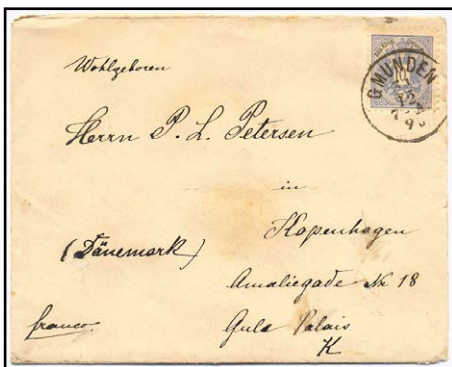 GMUNDEN
Wohlgeboren
Herrn P. L. Petersen
in
Kopenhagen
(Dänemark)
Amaliegade № 18
franco
Gule Palais
K